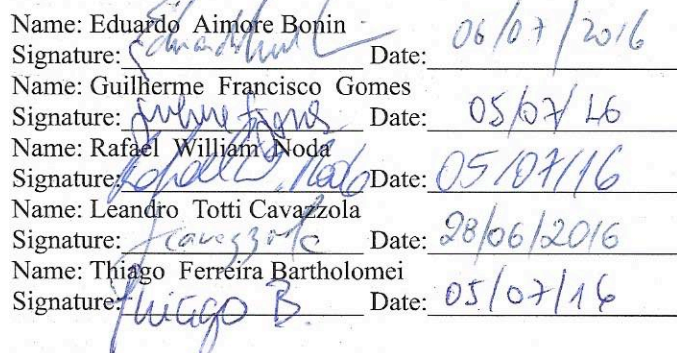 Name: Eduardo Aimore Bonin
Signature: Date: 06/07/2016
Name: Guilherme Francisco Gomes
Signature: Date: 05/07/16
Name: Rafael William Noda
Signature: Date: 05/07/16
Name: Leandro Totti Cavazzola
Signature: Lcavazzola Date: 28/06/2016
Name: Thiago Ferreira Bartholomei
Signature: Thiago B. Date: 05/07/16